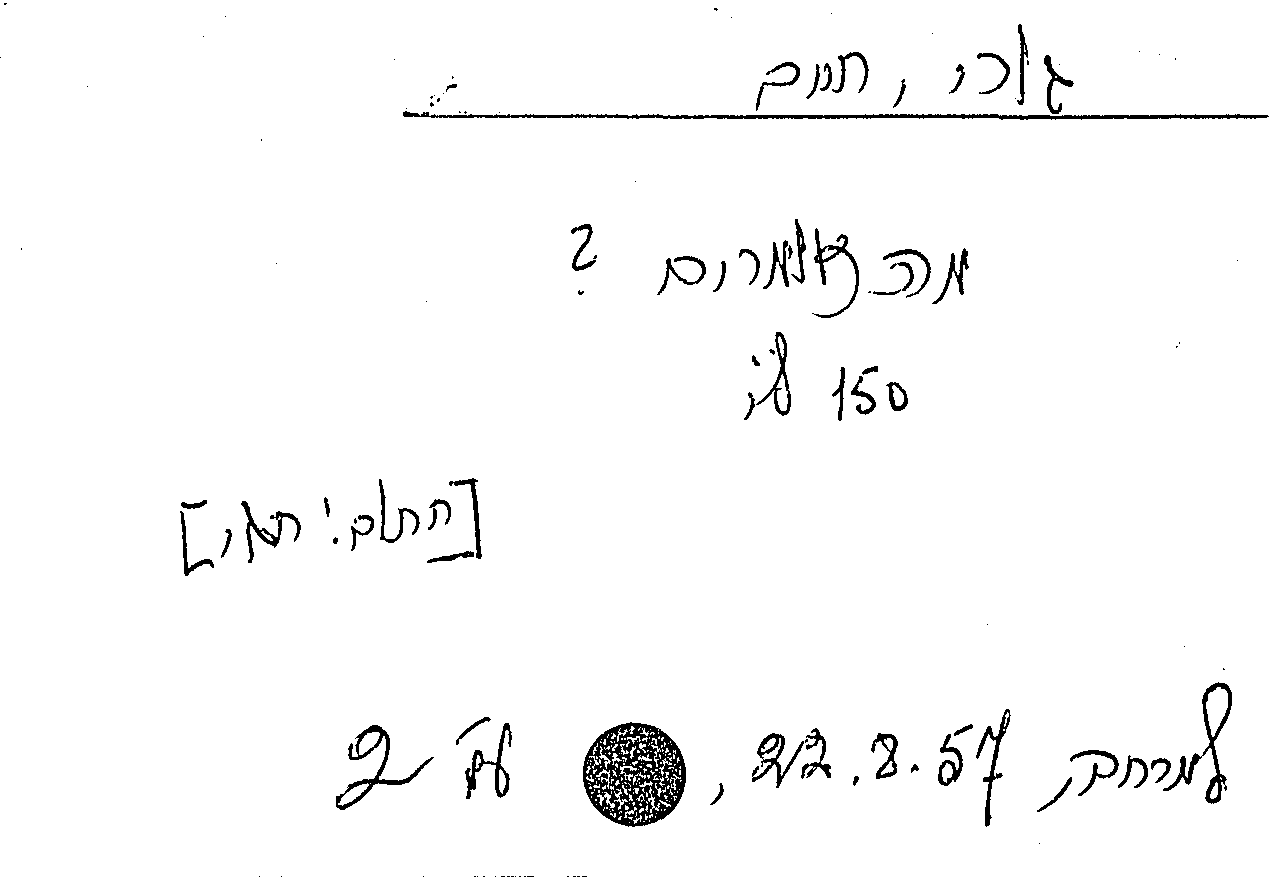 גורי, חיים
מה אומרים ?
150 ל"י
[חתום: ]
למרחב, 22.8.57, עמ' 2